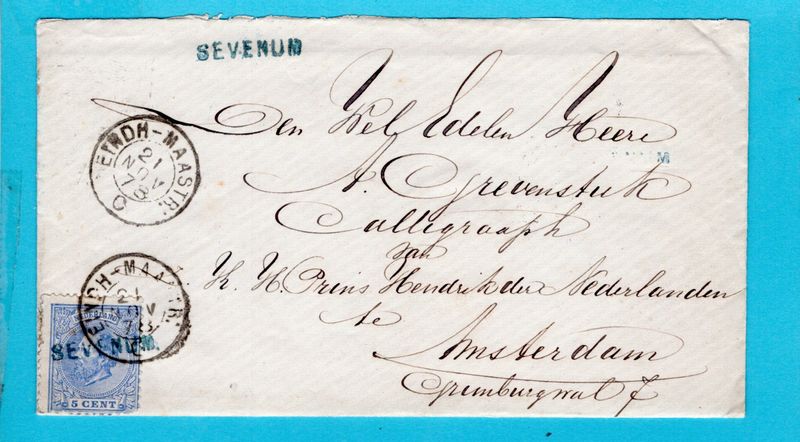 SEVENUM
EINDH-MAASTR:
21
NOV
78
C
Den Wel Edelen Heere
A. Grevenstuk
M
Calligraaph
van
Z. K. H. Prins Hendrik der Nederlanden
te
Amsterdam
Grimburgwal 7
EINDH-MAASTR:
21
NOV
78
SEVENUM.
NEDERLAND
5 CENT